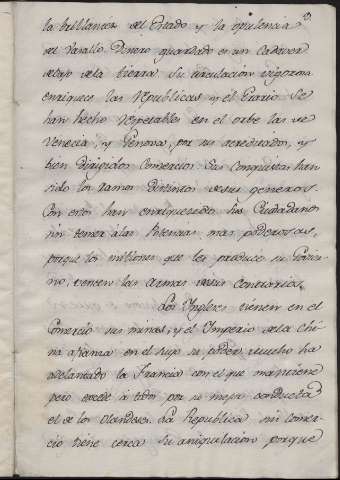 la brillantes del Estado y la opulencia
del Vasallo. Dinero guardado es un Cadaver
debajo de la tierra. Su circulacion vigorosa
enriquece las Republicas y el Erario. Se
han hecho respetables en el orbe las de
Venecia, y Genova, por su acreditado, y
bien dirigidos Comercios. Sus Conquistas han
sido los ramos distintos de sus generos.
Con estos han enriquezido sus Ciudadanos
sin temer á las Potencias mas poderosas,
porque los millones que les produce su
no, vencen las armas de sus Contrarios.
Los Ingleses tienen en el
Comercio sus minas, y el Imperio de la Chi
na afianza en el suyo su poder, mucho ha
adelantado la Francia con el que mantiene
pero excede á todos por su mejor conducta
el de los Olandeses. La Republica sin comer
cio tiene cerca su aniquilacion porque